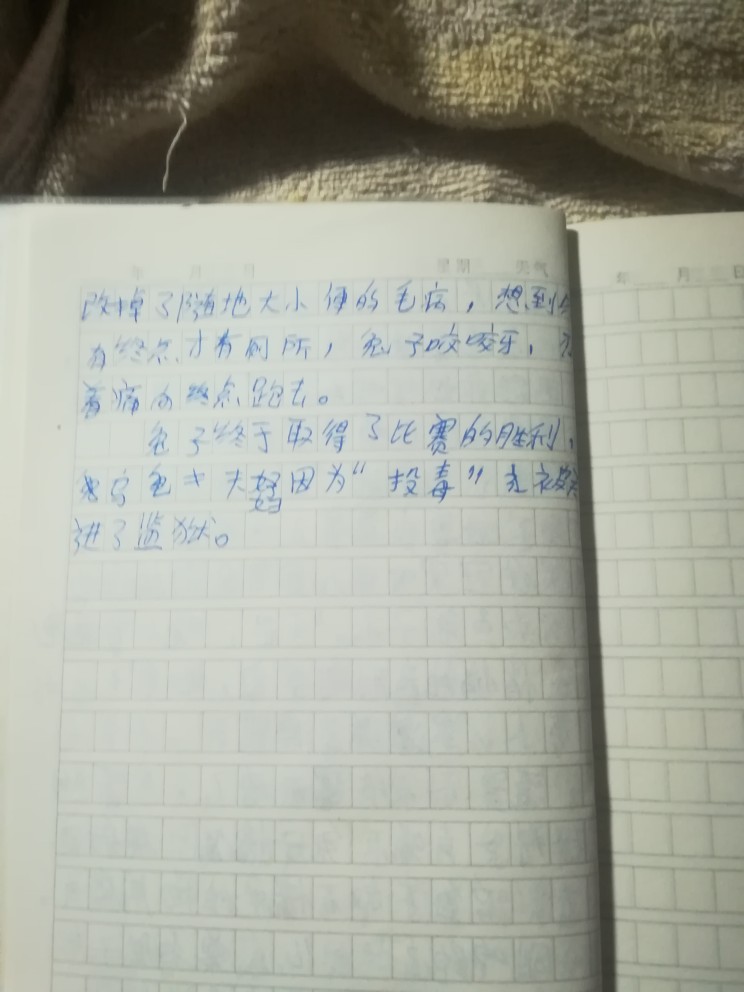 年 月 日 星期 天气
年 月 日
改掉了随地大小便的毛病，想到
有终点才有厕所，兔子咬咬牙，
着痛向终点跑去。
兔子终于取得了比赛的胜利，
乌龟 夫 因为“投毒” 被
进了监狱。